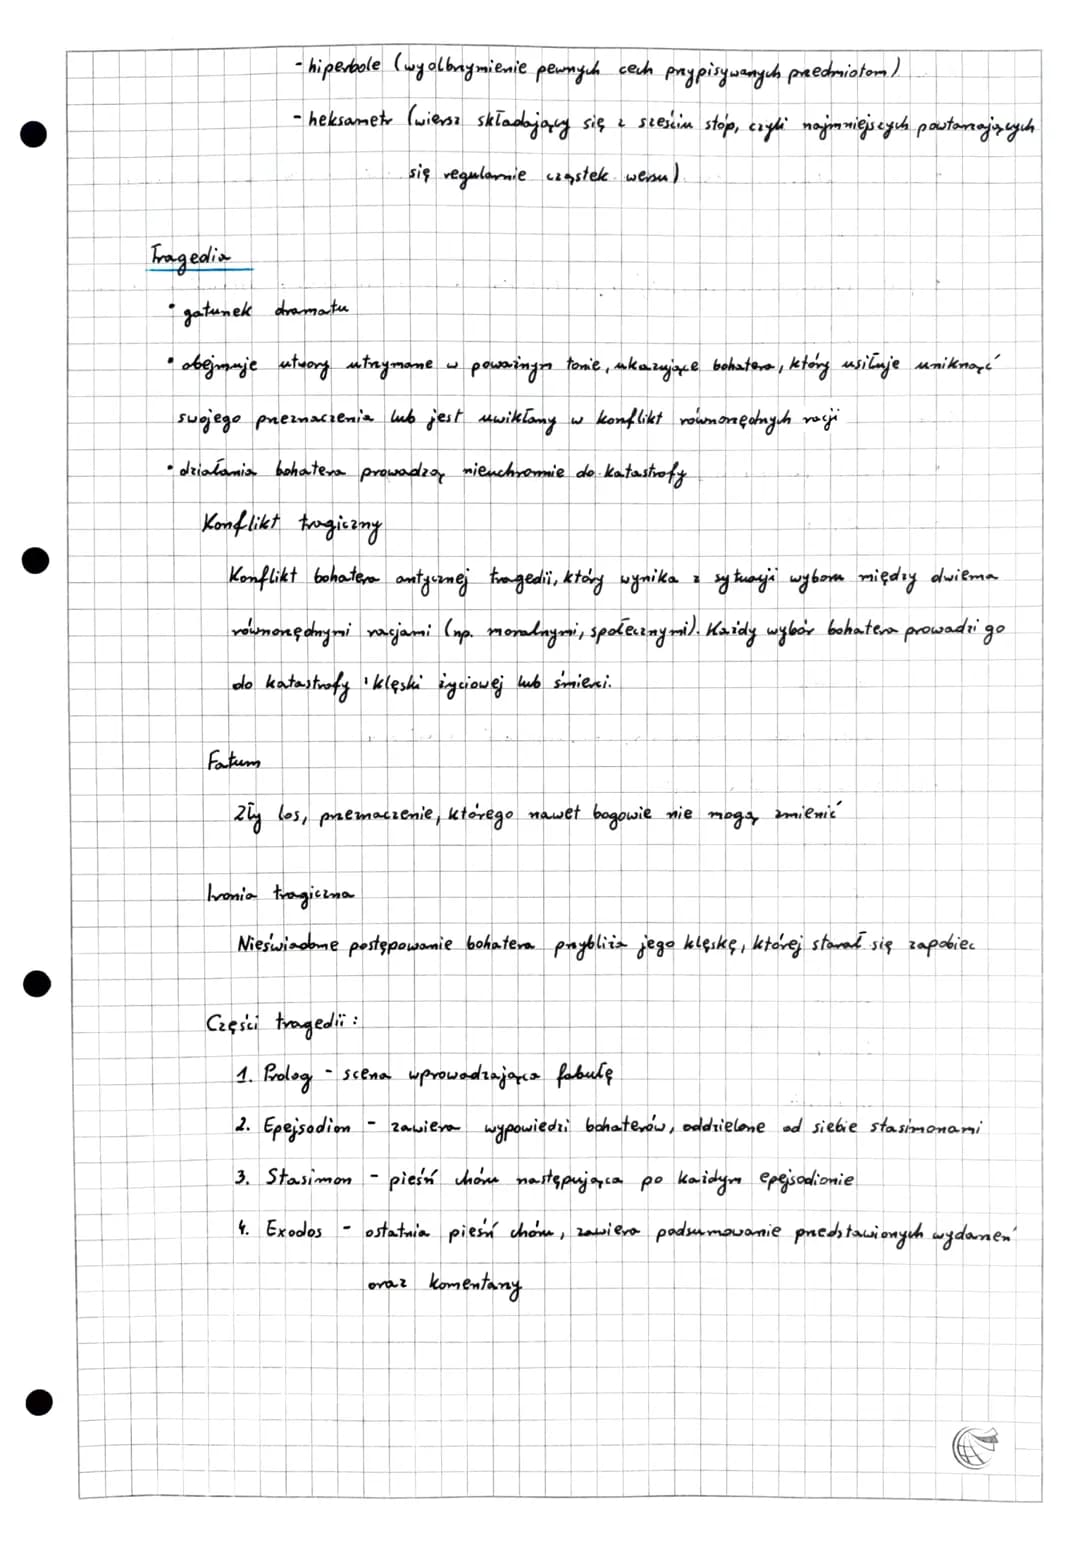 - hiperbole (wyolbrzymienie pewnych cech przypisywanych przedmiotom)
- heksametr (wiersz składający się z sześciu stóp, czyli najmniejszych powtarzających
się regularnie cząstek wersu)
Tragedia
• gatunek dramatu
• obejmuje utwory utrzymane w poważnym tonie, ukazujące bohatera, który usiłuje uniknąć
swojego przeznaczenia lub jest uwikłany w konflikt równorzędnych racji
• działania bohatera prowadzą nieuchronnie do katastrofy
Konflikt tragiczny
Konflikt bohatera antycznej tragedii, który wynika z sytuacji wyboru między dwiema
równorzędnymi racjami (np. moralnymi, społecznymi). Każdy wybór bohatera prowadzi go
do katastrofy, klęski życiowej lub śmierci.
Fatum
Zły los, przeznaczenie, którego nawet bogowie nie mogą zmienić
Ironia tragiczna
Nieświadome postępowanie bohatera przybliża jego klęskę, której starał się zapobiec
Części tragedii:
1. Prolog - scena wprowadzająca fabułę
2. Epejsodion - zawiera wypowiedzi bohaterów, oddzielone od siebie stasimonami
3. Stasimon - pieśń chóru następująca po każdym epejsodionie
4. Exodos - ostatnia pieśń chóru, zawiera podsumowanie przedstawionych wydarzeń
oraz komentarzy